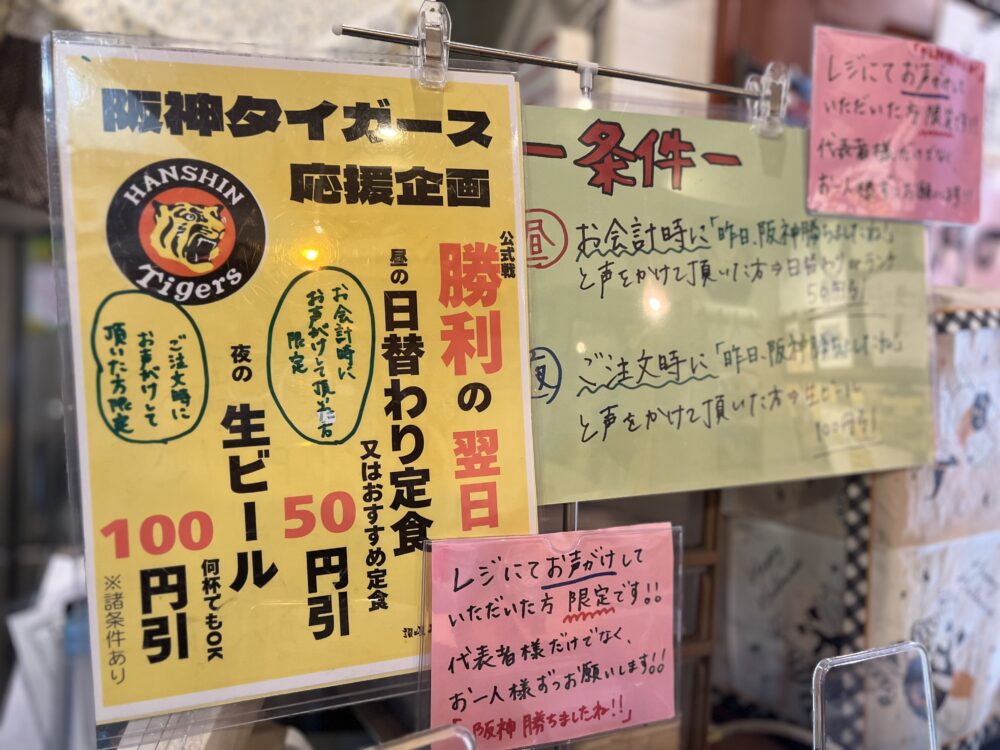 阪神タイガース
応援企画
HANSHIN
Tigers
公式戦
勝利の翌日
昼の日替わり定食
又はおすすめ定食
50円引
お会計時に
お声がけして頂いた方
限定
夜の生ビール
何杯でもOK
100円引
ご注文時に
お声がけして
頂いた方限定
※諸条件あり
ー条件ー
昼
お会計時に「昨日、阪神勝ちましたね!」
と声をかけて頂いた方⇒日替わりorランチ
50円引
夜
ご注文時に「昨日、阪神勝ちましたね!」
と声をかけて頂いた方⇒生ビール
100円引
レジにてお声がけして
いただいた方限定です!!
代表者様だけでなく
お一人様ずつお願いします!!
レジにてお声がけして
いただいた方 限定です!!
代表者様だけでなく、
お一人様ずつお願いします!!
「阪神勝ちましたね!!」